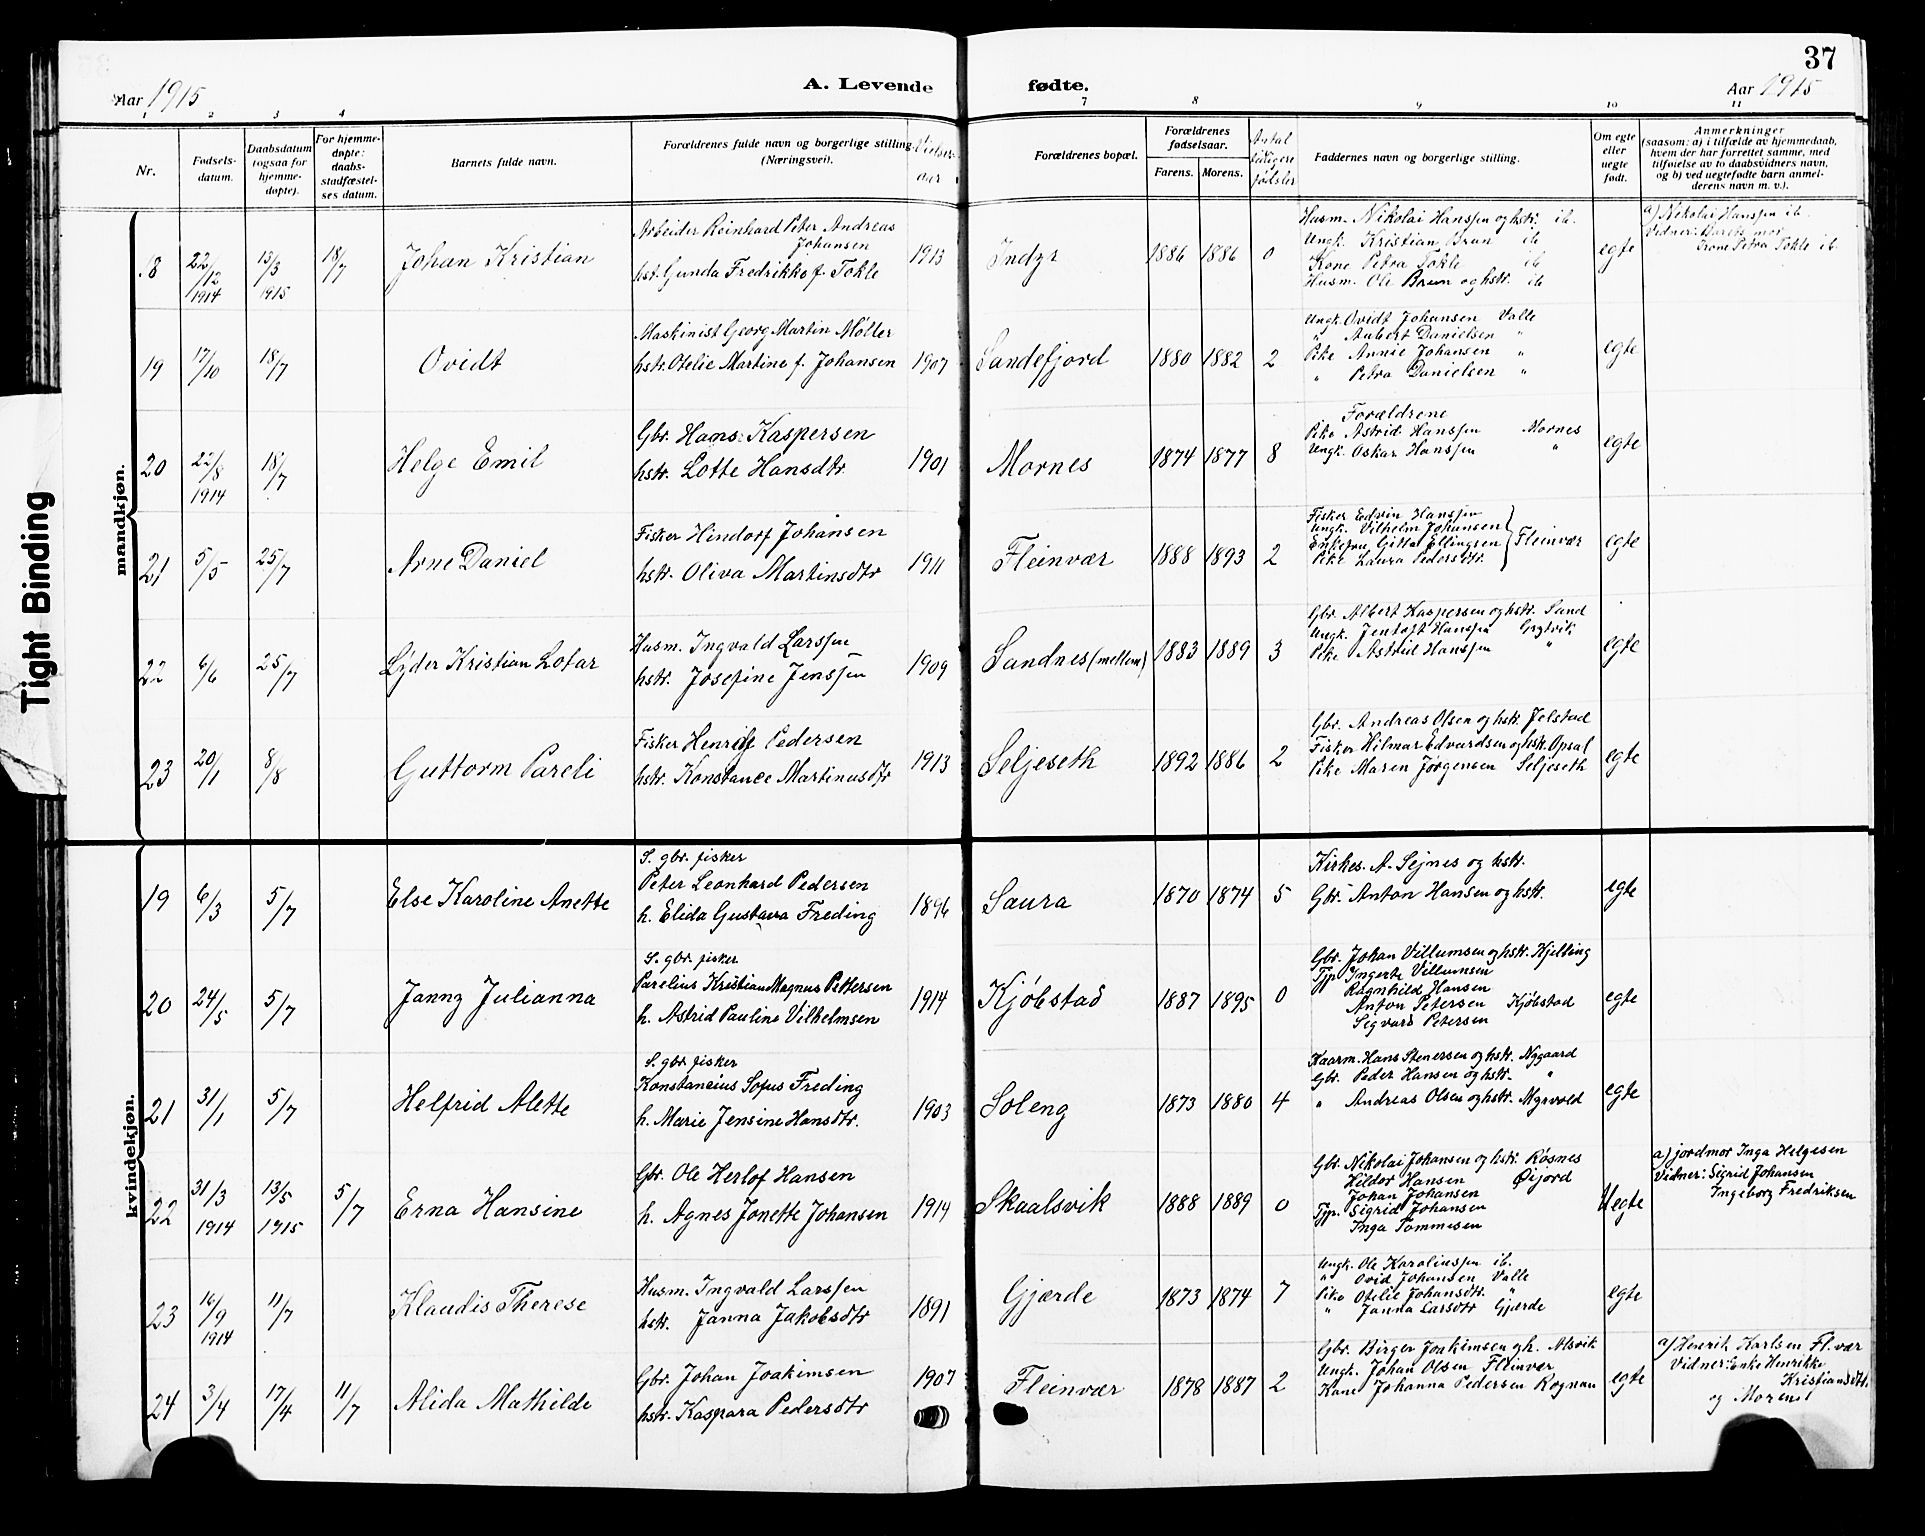 37
Aar 1915
A. Levende fødte.
Aar 1915
1 2 3 4 7 8 9 10 11
Nr.
Fødselsdatum.
Daabsdatum (ogsaa for hjemmedøpte).
For hjemmedøpte: daabsstadfæstelses datum.
Barnets fulde navn.
Forældrenes fulde navn og borgerlige stilling (Næringsvei).
Vielsesaar
Forældrenes bopæl.
Forældrenes fødselsaar.
Farens. Morens.
Antal tidligere fødsler
Faddernes navn og borgerlige stilling.
Om egte eller uegte født.
Anmerkninger
(saasom: a) i tilfælde av hjemmedaab, hvem der har forrettet samme, med tilføielse av to daabsvidners navn, og b) ved uegtefødte barn anmelderens navn m. v.).
Tight Binding
mandkjøn.
18 22/12 1914 13/3 1915 18/7 Johan Kristian
Arbeider Reinhard Peter Andreas Johansen
hst. Gunda Fredrikke f. Tokle
1913 Indyr 1886 1886 0
Husm. Nikolai Hanssen og hstr. ib.
Ungk. Kristian Brun ib
Kone Petra Tokle ib
Husm. Ole Brun og hstr. ib
egte
a) Nikolai Hanssen ib.
Vidner: Barets mor
Kone Petra Tokle ib.
19 17/10 18/7 Ovidt
Maskinist Georg Martin Møller
hstr. Otelie Martine f. Johansen
1907 Sandefjord 1880 1882 2
Ungk. Ovidt Johansen Valle
" Anbert Danielsen "
Pike Annie Johansen "
" Petra Danielsen "
egte
20 22/8 1914 18/7 Helge Emil
Gbr. Hans Kaspersen
hstr. Lotte Hansdtr.
1901 Mornes 1874 1877 8
Forældrene
Pike Astrid Hanssen Mornes
Ungk. Oskar Hanssen "
egte
21 5/5 25/7 Arne Daniel
Fisker Hindorf Johansen
hstr. Oliva Martinsdtr
1911 Fleinvær 1888 1893 2
Fisker Edvin Hanssen
Ungk. Vilhelm Johansen
Enkefru Gitta Ellingsen Fleinvær
Pike Laura Pedersdtr.
egte
22 6/6 25/7 Lyder Kristian Lotar
Husm. Ingvald Larssen
hstr. Josefine Jenssen
1909 Sandnes (mellem) 1883 1889 3
Gbr. Albert Kaspersen og hstr. Sund
Ungk. Jentoft Hanssen
Pike Astrid Hanssen "
egte
23 20/1 8/8 Guttorm Pareli
Fisker Henrik Pedersen
hstr. Konstance Martinusdtr
1913 Seljeseth 1892 1886 2
Gbr. Andreas Olsen og hstr. Jelstad
Fisker Hilmar Edvardsen og hstr. Opsal
Pike Maren Jørgensen Seljeseth
egte
kvindekjøn.
19 6/3 5/7 Else Karoline Anette
S. gbr. fisker
Peter Leonhard Pedersen
h. Elida Gustava Freding
1896 Saura 1870 1874 5
Kirkes. A. Sejnes og hstr.
Gbr. Anton Hansen og hstr.
egte
20 24/5 5/7 Janny Julianna
S. gbr. fisker
Parelius Kristian Magnus Pettersen
h. Astrid Pauline Vilhelmsen
1914 Kjøbstad 1887 1895 0
Gbr. Johan Villumsen og hstr. Kjelling
Tjp. Ingerte Villumsen
Ragnhild Hansen
Anton Petersen Kjøbstad
Segvard Petersen
egte
21 31/1 5/7 Helfrid Alette
S. gbr. fisker
Konstancius Sofus Freding
h. Marie Jensine Hansdtr.
1903 Soleng 1873 1880 4
Kaarm. Hans Stenersen og hstr. Nygaard
Gbr. Peder Hansen og hstr. "
" Andreas Olsen og hstr. Myrvold
egte
22 31/3 1914 13/5 1915 5/7 Erna Hansine
Gbr. Ole Herlof Hansen
h. Agnes Jonette Johansen
1914 Skaalsvik 1888 1889 0
Gbr. Nikolai Johansen og hstr. Røsnes
Hildor Hansen Øijord
Johan Johansen
Tjp. Sigrid Johansen
Inga Tommesen
Uegte
a) jordmor Inga Helgesen
Vidner: Sigrid Johansen
Ingeborg Fredriksen
23 16/9 1914 11/7 Klaudis Therese
Husm. Ingvald Larssen
hstr. Janna Jakobsdtr
1891 Gjærde 1873 1874 7
Ungk. Ole Karoliussen ib.
" Ovid Johansen Valle
Pike Otelie Johansdtr. "
" Janna Larsdtr Gjerde
egte
24 3/4 17/4 11/7 Alida Mathilde
Gbr. Johan Joakimsen
hstr. Kaspara Pedersdtr
1907 Fleinvær 1878 1887 2
Gbr. Birger Joakimsen og h. Alsvik
Ungk. Johan Olsen Fleinvær
Kone Johanna Pedersen Rognan
egte
a) Henrik Karlsen Fl.vær
Vidner: Enke Henrikke
Kristiansdtr.
og Moren